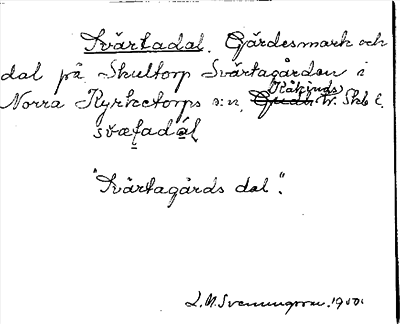 Svärtadal. Gärdesmark och
dal på Skultorp Svärtagården i
Norra Kyrketorps s:n, Kåkinds h. Skb. l.
svæṭadál
"Svärtagårds dal".
1900.